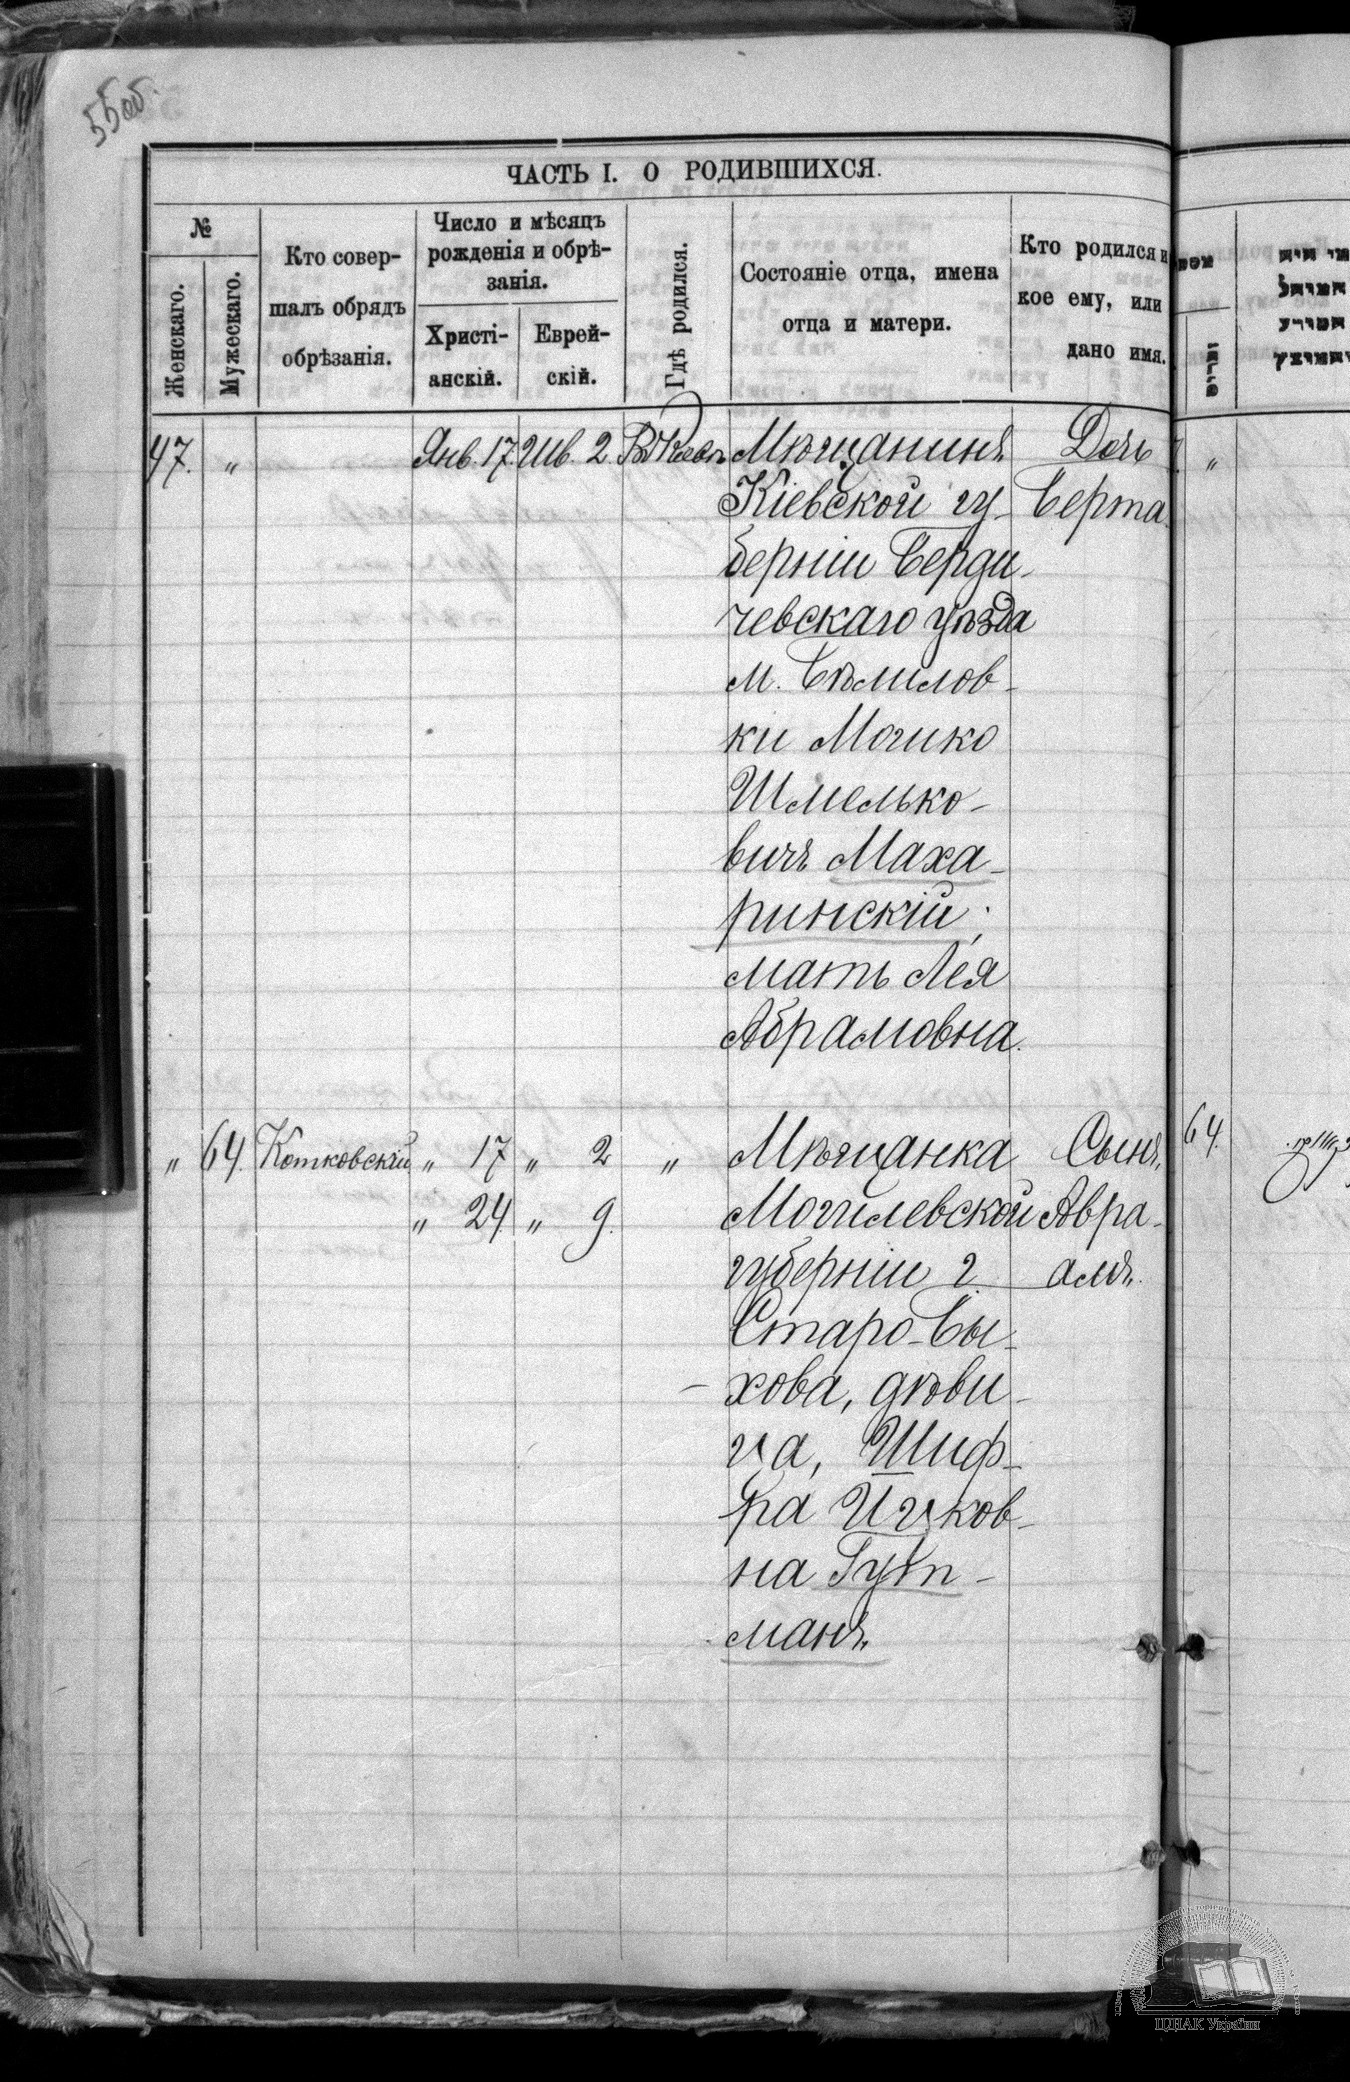 55об.
ЧАСТЬ I. О РОДИВШИХСЯ.
№
Женскаго.
Мужескаго.
Кто совер-
шалъ обрядъ
обрѣзанія.
Число и мѣсяцъ
рожденія и обрѣ-
занія.
Христі-
анскій.
Еврей-
скій.
Гдѣ родился.
Состояніе отца, имена
отца и матери.
Кто родился и
кое ему, или
дано имя.
47. „ Янв. 17. Шв. 2. Въ Кіевѣ Мѣщанинъ Дочь
Кіевской гу- Берта.
берніи Берди-
чевскаго уѣзда
м. Бѣлилов-
ки Мошко
Шмелько-
вичъ Маха-
ринскій;
мать Лея
Абрамовна.
„ 64. Котковскій „ 17 „ 2 „ Мѣщанка Сынъ 64.
„ 24. „ 9. Могилевской Авра-
губерніи г. амъ.
Старо-Бы-
хова, дѣви-
ца, Шиф-
ра Ицков-
на Гут-
манъ.
ЦДІАК України